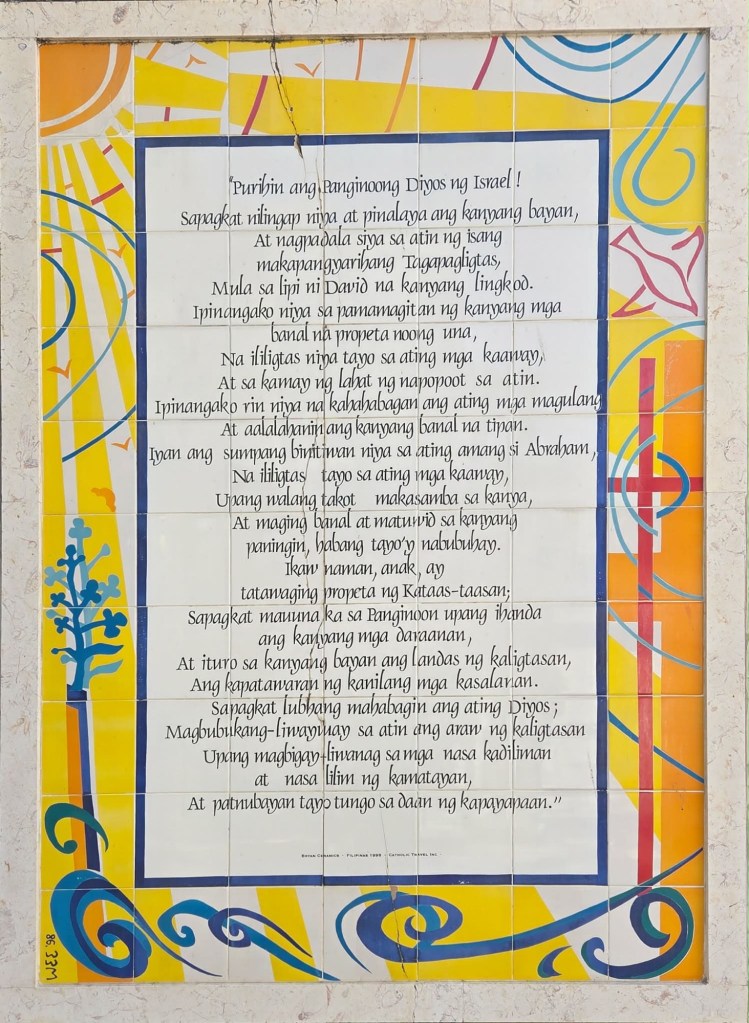 "Purihin ang Panginoong Diyos ng Israel !
Sapagkat nilingap niya at pinalaya ang kanyang bayan,
At nagpadala siya sa atin ng isang
makapangyarihang Tagapagligtas,
Mula sa lipi ni David na kanyang lingkod.
Ipinangako niya sa pamamagitan ng kanyang mga
banal na propeta noong una,
Na ililigtas niya tayo sa ating mga kaaway,
At sa kamay ng lahat ng napopoot sa atin.
Ipinangako rin niya na kahahabagan ang ating mga magulang
At aalalahanin ang kanyang banal na tipan.
Iyan ang sumpang binitiwan niya sa ating amang si Abraham,
Na ililigtas tayo sa ating mga kaaway,
Upang walang takot makasamba sa kanya,
At maging banal at matuwid sa kanyang
paningin, habang tayo'y nabubuhay.
Ikaw naman, anak, ay
tatawaging propeta ng Kataas-taasan;
Sapagkat mauuna ka sa Panginoon upang ihanda
ang kanyang mga daraanan,
At ituro sa kanyang bayan ang landas ng kaligtasan,
Ang kapatawaran ng kanilang mga kasalanan.
Sapagkat lubhang mahabagin ang ating Diyos;
Magbubukang-liwayway sa atin ang araw ng kaligtasan
Upang magbigay-liwanag sa mga nasa kadiliman
at nasa lilim ng kamatayan,
At patnubayan tayo tungo sa daan ng kapayapaan."
Filipinas 1986 - Catholic Travel Inc